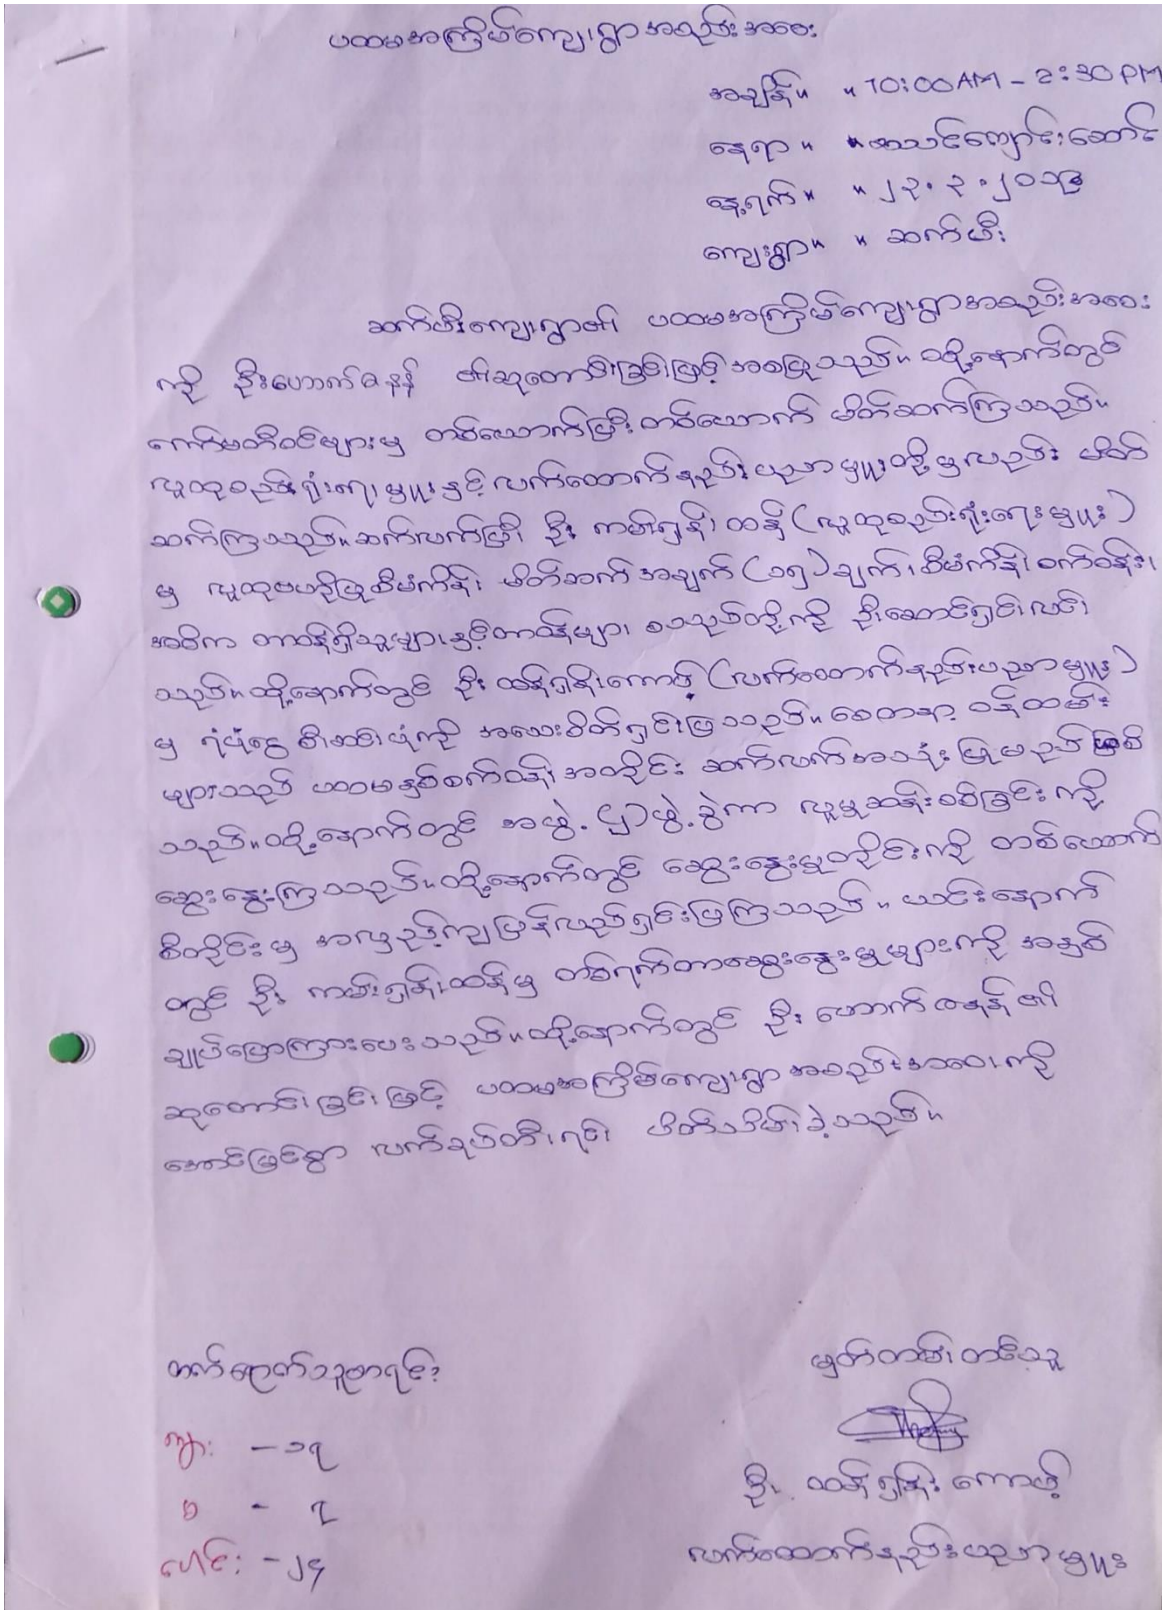 ပထမအကြိမ်ကျေးရွာအစည်းအဝေး
အချိန်။ ။ 10:00AM - 2:30PM
နေရာ ။ ။ စာသင်ကျောင်းဆောင်
နေ့ရက် ။ ။ ၂၃.၃.၂၀၁၉
ကျေးရွာ။ ။ ဆက်ဖီး
ဆက်ဖီးကျေးရွာ၏ ပထမအကြိမ်ကျေးရွာအစည်းအဝေး
ကို ဦးဟောက်ခနန် ၏ဆုတောင်းခြင်းဖြင့်အစပြုသည်။ ထို့နောက်တွင်
ကော်မတီဝင်များမှ တစ်ယောက်ပြီးတစ်ယောက် မိတ်ဆက်ကြသည်။
လူထုစည်းရုံးရေးမှူးနှင့်လက်ထောက်နည်းပညာမှူးတို့မှလည်း မိတ်
ဆက်ကြသည်။ဆက်လက်ပြီး ဦး ကမ်းရှန်းထန် (လူထုစည်းရုံးရေးမှူး)
မှ လူထုဗဟိုပြုစီမံကိန်း မိတ်ဆက် အချက် (၁၅)ချက်၊စီမံကိန်း စက်ဝန်း၊
အဓိက တာဝန်ရှိသူများနှင့်တာဝန်များ စသည်တို့ကို ဦးဆောင်ရှင်းလင်း
သည်။ထို့နောက်တွင် ဦး ထန်ရှန်းကောဖ့် (လက်ထောက်နည်းပညာမှူး)
မှ ရံပုံငွေ စီးဆင်းပုံကို အသေးစိတ်ရှင်းပြသည်။ စေတနာ့ ဝန်ထမ်း
များသည် ပထမနှစ်စက်ဝန်းအတိုင်း ဆက်လက်အသုံး ပြုမည်ဖြစ်
သည်။ထို့နောက်တွင် အဖွဲ့ (၂)ဖွဲ့ခွဲကာ လူမှုဆန်းစစ်ခြင်းကို
ဆွေးနွေးကြသည်။ထို့နောက်တွင် ဆွေးနွေးမှုတိုင်းကို တစ်ယောက်
စီတိုင်းမှ အလှည့်ကျပြန်လည်ရှင်းပြကြသည် ။ ယင်းနောက်
တွင် ဦး ကမ်းရှန်းထန်မှ တစ်ရက်တာဆွေးနွေးမှုများကို အနှစ်
ချုပ်ပြောကြားပေးသည်။ထို့နောက်တွင် ဦး ဟောက်ခနန်၏
ဆုတောင်းခြင်းဖြင့် ပထမအကြိမ်ကျေးရွာအစည်းအဝေးကို
အောင်မြင်စွာ လက်ခုပ်တီးရင်း ပိတ်သိမ်းခဲ့သည်။
တက်ရောက်သူစာရင်း
မှတ်တမ်းတင်သူ
ကျား - ၁၇
မ - ၇
ပေါင်း - ၂၄
ဦး ထန်ရှန်းကောဖ့်
လက်ထောက်နည်းပညာမှူး